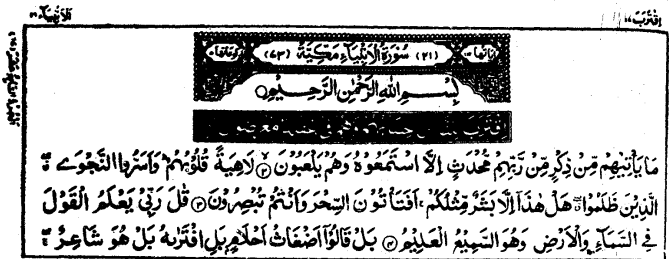 اقترب ١٧
الانبیاء ٢١
(٢١) سُوْرَةُ الْاَنْۢبِیَآءِ مَكِّیَّةٌ (٧٣)
بِسْمِ اللهِ الرَّحْمٰنِ الرَّحِیْمِ
اِقْتَرَبَ
مَا یَاْتِیْهِمْ مِّنْ ذِكْرٍ مِّنْ رَّبِّهِمْ مُّحْدَثٍ اِلَّا اسْتَمَعُوْهُ وَهُمْ یَلْعَبُوْنَ ۝٢ لَاهِیَةً قُلُوْبُهُمْ وَاَسَرُّوا النَّجْوَی
الَّذِیْنَ ظَلَمُوْا هَلْ هٰذَاۤ اِلَّا بَشَرٌ مِّثْلُكُمْ اَفَتَاْتُوْنَ السِّحْرَ وَاَنْتُمْ تُبْصِرُوْنَ ۝٣ قٰلَ رَبِّیْ یَعْلَمُ الْقَوْلَ
فِی السَّمَآءِ وَالْاَرْضِ وَهُوَ السَّمِیْعُ الْعَلِیْمُ ۝٤ بَلْ قَالُوْۤا اَضْغَاثُ اَحْلَامٍۭ بَلِ افْتَرٰىهُ بَلْ هُوَ شَاعِرٌ